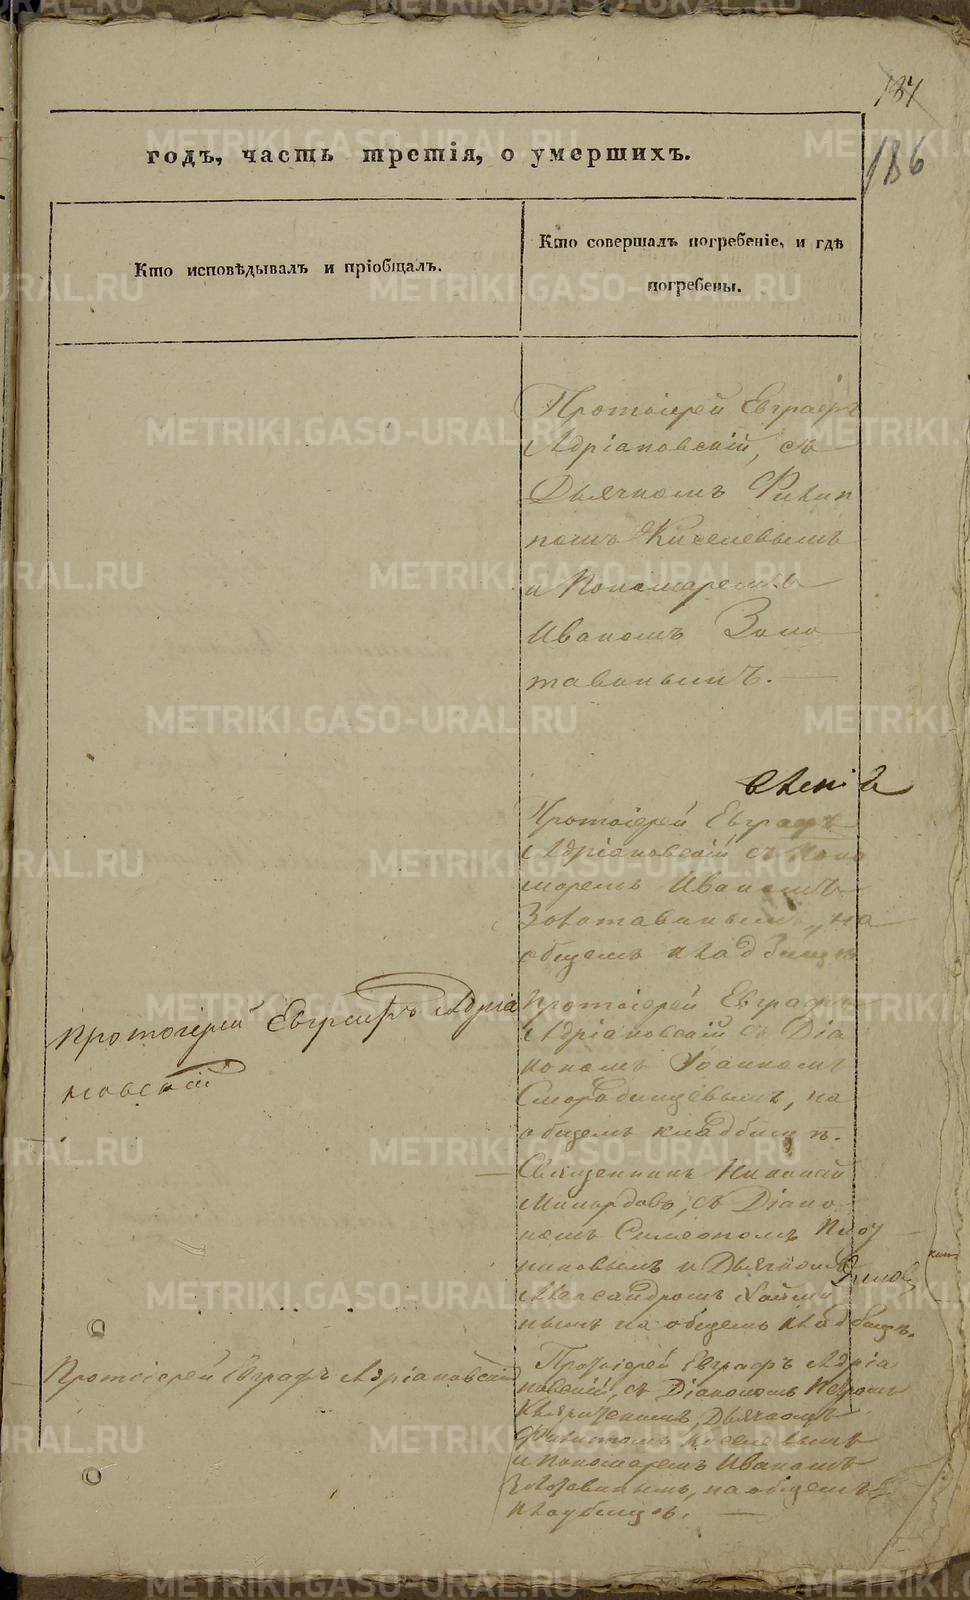 187
186
годъ, часть третія, о умершихъ.
Кто исповѣдывалъ и пріобщалъ.
Кто совершалъ погребеніе, и гдѣ
погребены.
Протоіерей Евграфъ
Адріановскій, съ
Дьячкомъ Филип
помъ Киселевымъ
и Пономаремъ
Иваномъ Золо
тавинымъ.
Протоіерей Евграфъ
Адріановскій съ Поно
моремъ Иваномъ
Золотавинымъ, на
общемъ кладбищѣ
Протоіерей Евграфъ Адріа
новскій
Протоіерей Евграфъ
Адріановскій съ Діа
кономъ Іоанномъ
Смородинцевымъ, на
общемъ кладбищѣ.
Священникъ Николай
съ Діако
номъ Симеономъ
и Дьячкомъ
Александромъ
нымъ на общемъ кладбищѣ.
Протоіерей Евграфъ Адріановскій
Протоіерей Евграфъ Адріа
новскій, съ Діакономъ Петромъ
Дьячкомъ
Филипомъ Киселевымъ
и Пономаремъ Иваномъ
Золотавинымъ, на общемъ
кладбищѣ.
METRIKI.GASO-URAL.RU